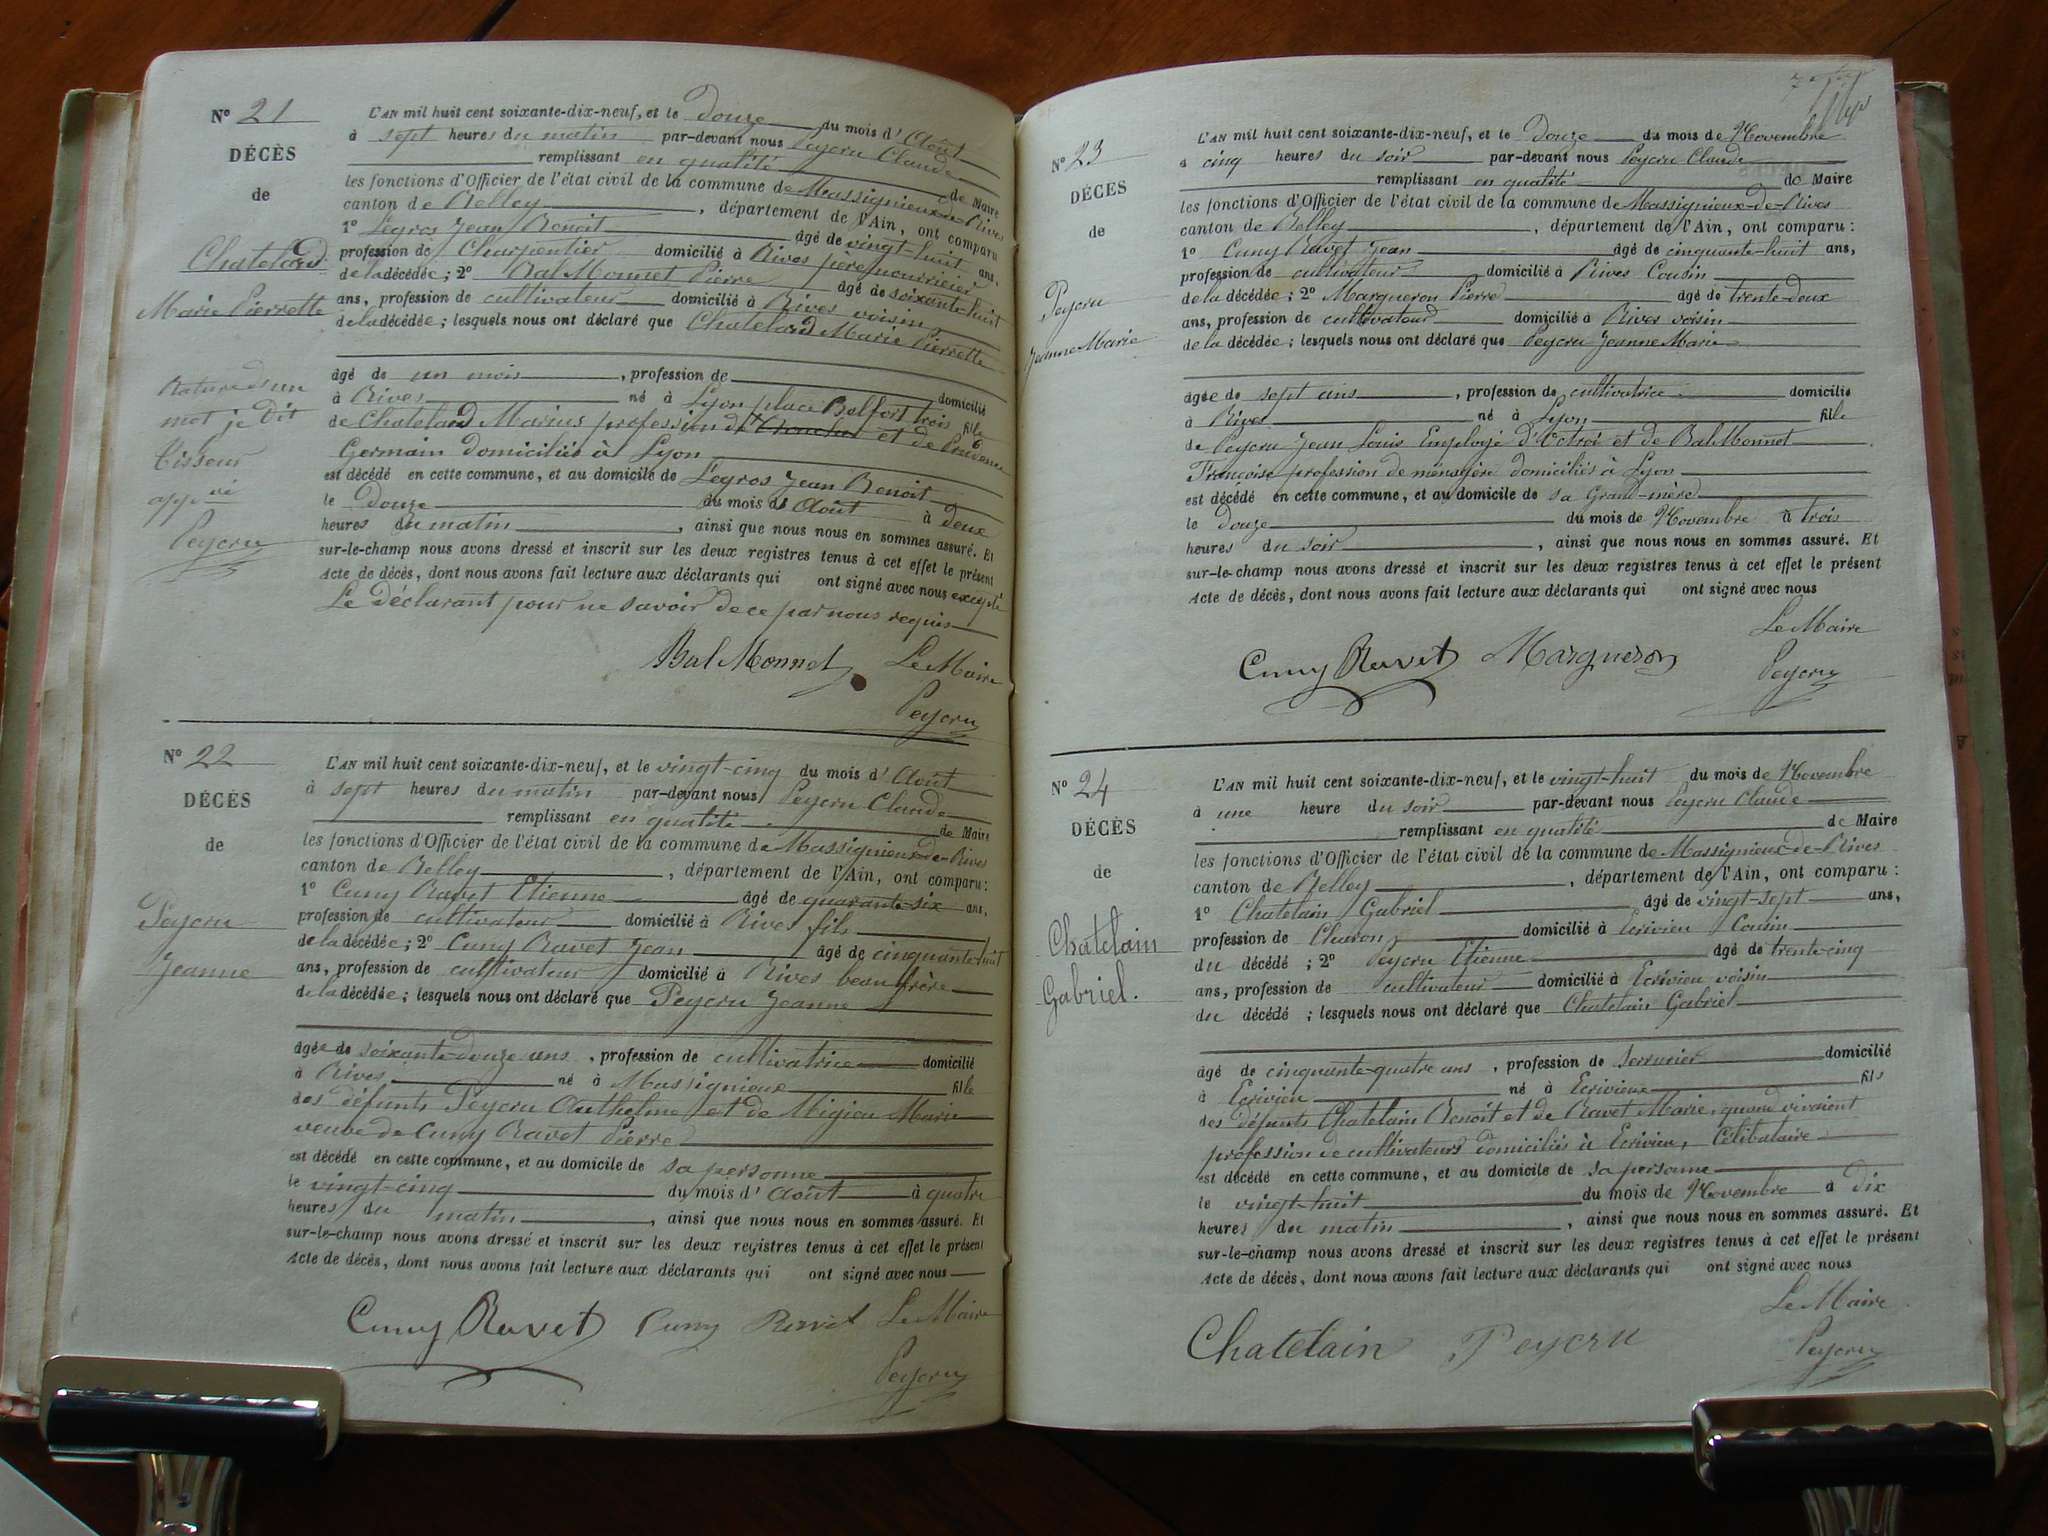 N° 21
DÉCÈS
de
Chatelard
Marie Pierrette
Rature d'un
mot je dit
tisseur
app.vé
Peycru
L'AN mil huit cent soixante-dix-neuf, et le douze du mois d'Août
à sept heures du matin par-devant nous Peycru Claude
remplissant en qualité de Maire
les fonctions d'Officier de l'état civil de la commune de Massignieux-de-Rives
canton de Belley, département de l'Ain, ont comparu
1° Legros Jean Benoit âgé de vingt-huit ans,
profession de Charpentier domicilié à Rives père nourricier
de la décédée; 2° Bal Monnet Pierre âgé de soixante-huit
ans, profession de cultivateur domicilié à Rives voisin
de la décédée; lesquels nous ont déclaré que Chatelard Marie Pierrette
âgé de un mois, profession de domicilié
à Rives né à Lyon place Belfort trois fille
de Chatelard Marius profession de et de Prudence
Germain domiciliés à Lyon
est décédé en cette commune, et au domicile de Legros Jean Benoit
le douze du mois de Août à deux
heures du matin, ainsi que nous nous en sommes assuré. Et
sur-le-champ nous avons dressé et inscrit sur les deux registres tenus à cet effet le présent
Acte de décès, dont nous avons fait lecture aux déclarants qui ont signé avec nous excepté
Le déclarant pour ne savoir de ce par nous requis
Bal Monnet Le Maire
Peycru
N° 22
DÉCÈS
de
Peycru
Jeanne
L'AN mil huit cent soixante-dix-neuf, et le vingt-cinq du mois d'Août
à sept heures du matin par-devant nous Peycru Claude
remplissant en qualité de Maire
les fonctions d'Officier de l'état civil de la commune de Massignieux-de-Rives
canton de Belley, département de l'Ain, ont comparu:
1° Cuny Ravet Etienne âgé de quarante-six ans,
profession de cultivateur domicilié à Rives fils
de la décédée; 2° Cuny Ravet Jean âgé de cinquante-huit
ans, profession de cultivateur domicilié à Rives beau frère
de la décédée; lesquels nous ont déclaré que Peycru Jeanne
âgée de soixante-douze ans, profession de cultivatrice domicilié
à Rives né à Massignieux fille
des défunts Peycru Anthelme et de Migieu Marie
veuve de Cuny Ravet Pierre
est décédé en cette commune, et au domicile de sa personne
le vingt-cinq du mois d'Août à quatre
heures du matin, ainsi que nous nous en sommes assuré. Et
sur-le-champ nous avons dressé et inscrit sur les deux registres tenus à cet effet le présent
Acte de décès, dont nous avons fait lecture aux déclarants qui ont signé avec nous
Cuny Ravet Cuny Ravet Le Maire
Peycru
N° 23
DÉCÈS
de
Peycru
Jeanne Marie
L'AN mil huit cent soixante-dix-neuf, et le douze du mois de Novembre
à cinq heures du soir par-devant nous Peycru Claude
remplissant en qualité de Maire
les fonctions d'Officier de l'état civil de la commune de Massignieux-de-Rives
canton de Belley, département de l'Ain, ont comparu:
1° Cuny Ravet Jean âgé de cinquante-huit ans,
profession de cultivateur domicilié à Rives Cousin
de la décédée; 2° Margueron Pierre âgé de trente-deux
ans, profession de cultivateur domicilié à Rives voisin
de la décédée; lesquels nous ont déclaré que Peycru Jeanne Marie
âgée de sept ans, profession de cultivatrice domicilié
à Rives né à Lyon fille
de Peycru Jean Louis Employé d'Octroi et de Bal Monnet
Françoise profession de ménagère domiciliés à Lyon
est décédé en cette commune, et au domicile de sa Grand-mère
le douze du mois de Novembre à trois
heures du soir, ainsi que nous nous en sommes assuré. Et
sur-le-champ nous avons dressé et inscrit sur les deux registres tenus à cet effet le présent
Acte de décès, dont nous avons fait lecture aux déclarants qui ont signé avec nous
Le Maire
Cuny Ravet Margueron Peycru
N° 24
DÉCÈS
de
Chatelain
Gabriel.
L'AN mil huit cent soixante-dix-neuf, et le vingt-huit du mois de Novembre
à une heure du soir par-devant nous Peycru Claude
remplissant en qualité de Maire
les fonctions d'Officier de l'état civil de la commune de Massignieux-de-Rives
canton de Belley, département de l'Ain, ont comparu:
1° Chatelain Gabriel âgé de vingt-sept ans,
profession de Charon domicilié à Ecrivieu Cousin
du décédé; 2° Peycru Etienne âgé de trente-cinq
ans, profession de cultivateur domicilié à Ecrivieu voisin
du décédé; lesquels nous ont déclaré que Chatelain Gabriel
âgé de cinquante-quatre ans, profession de serrurier domicilié
à Ecrivieu né à Ecrivieu fils
des défunts Chatelain Benoit et de Ravet Marie, quand vivaient
profession de cultivateurs domiciliés à Ecrivieu, Célibataire
est décédé en cette commune, et au domicile de sa personne
le vingt-huit du mois de Novembre à dix
heures du matin, ainsi que nous nous en sommes assuré. Et
sur-le-champ nous avons dressé et inscrit sur les deux registres tenus à cet effet le présent
Acte de décès, dont nous avons fait lecture aux déclarants qui ont signé avec nous
Le Maire
Chatelain Peycru Peycru